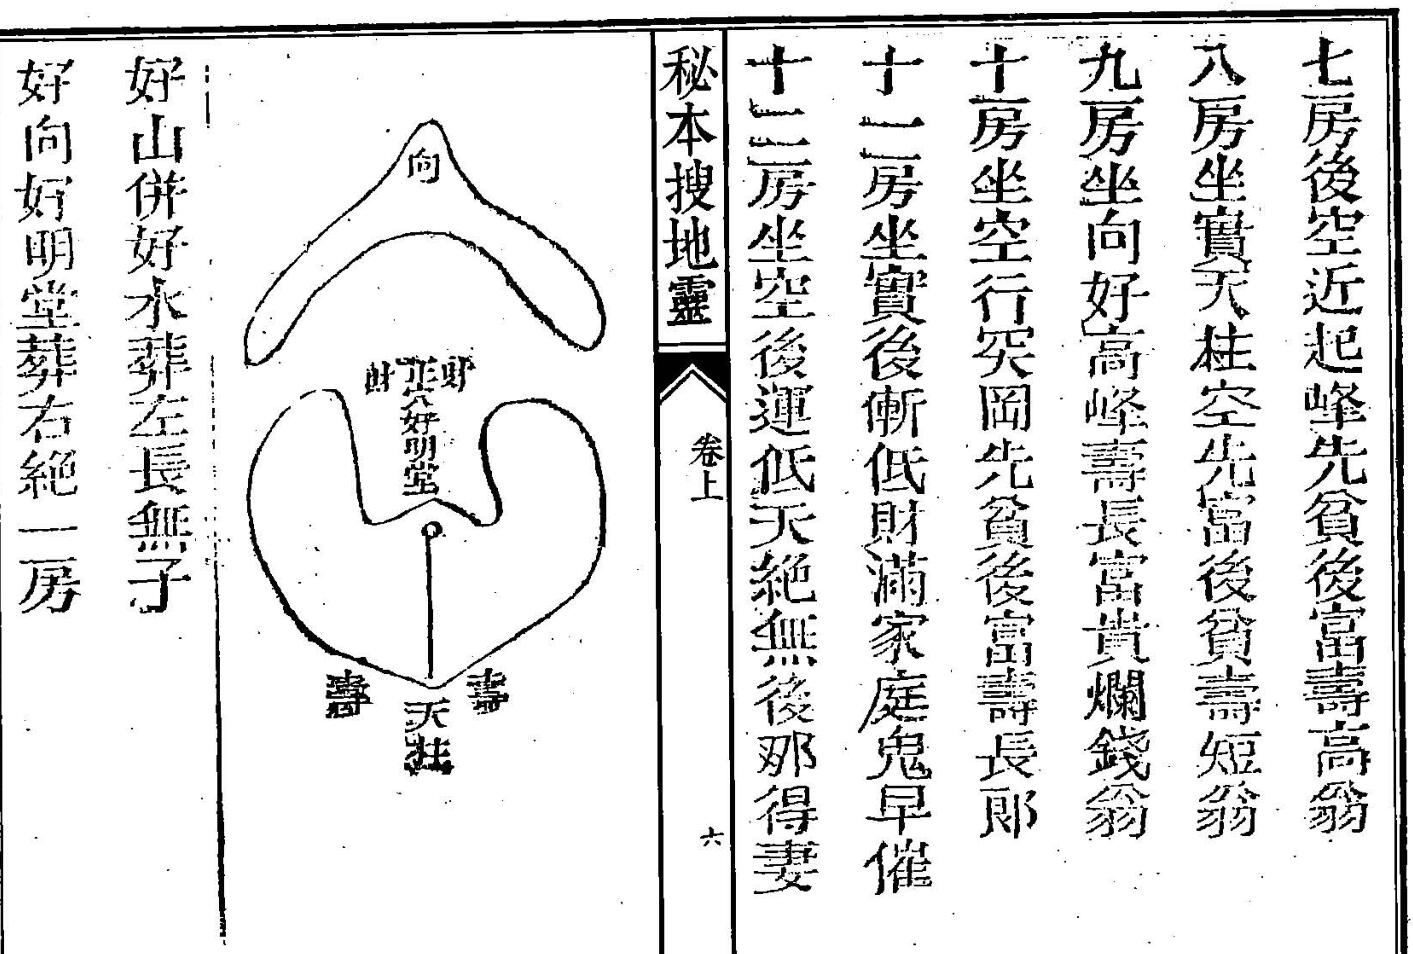 七房後空近起峰先貧後富壽高翁
八房坐實天柱空先富後貧壽短翁
九房坐向好高峰壽長富貴爛錢翁
十房坐空行突岡先貧後富壽長郎
十一房坐實後漸低財滿家庭鬼早催
十二房坐空後運低天絕無後那得妻
秘本搜地靈
卷上
六
向
財
正穴好明堂
財
壽
天柱
壽
好山併好水葬左長無子
好向好明堂葬右絕一房